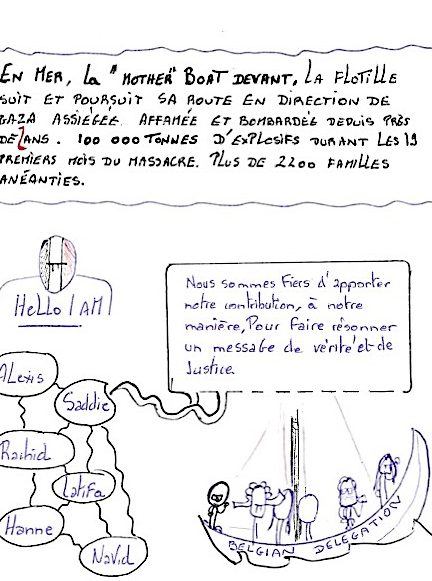 EN MER, La "MOTHER" BOAT DEVANT, LA FLOTILLE
SUIT ET POURSUIT SA ROUTE EN DIRECTION DE
GAZA ASSIÉGÉE AFFAMÉE ET BOMBARDÉE DEPUIS PRÈS
DE 2 ANS. 100 000 TONNES D'EXPLOSIFS DURANT LES 19
PREMIERS MOIS DU MASSACRE. PLUS DE 2200 FAMILLES
ANÉANTIES.
HeLLo I AM
Nous sommes Fiers d'apporter
notre contribution, à notre
manière, Pour faire résonner
un message de vérité et de
Justice.
ALexis
Saddie
Rachid
Latifa
Hanne
Navid
BELGIAN DELEGATION